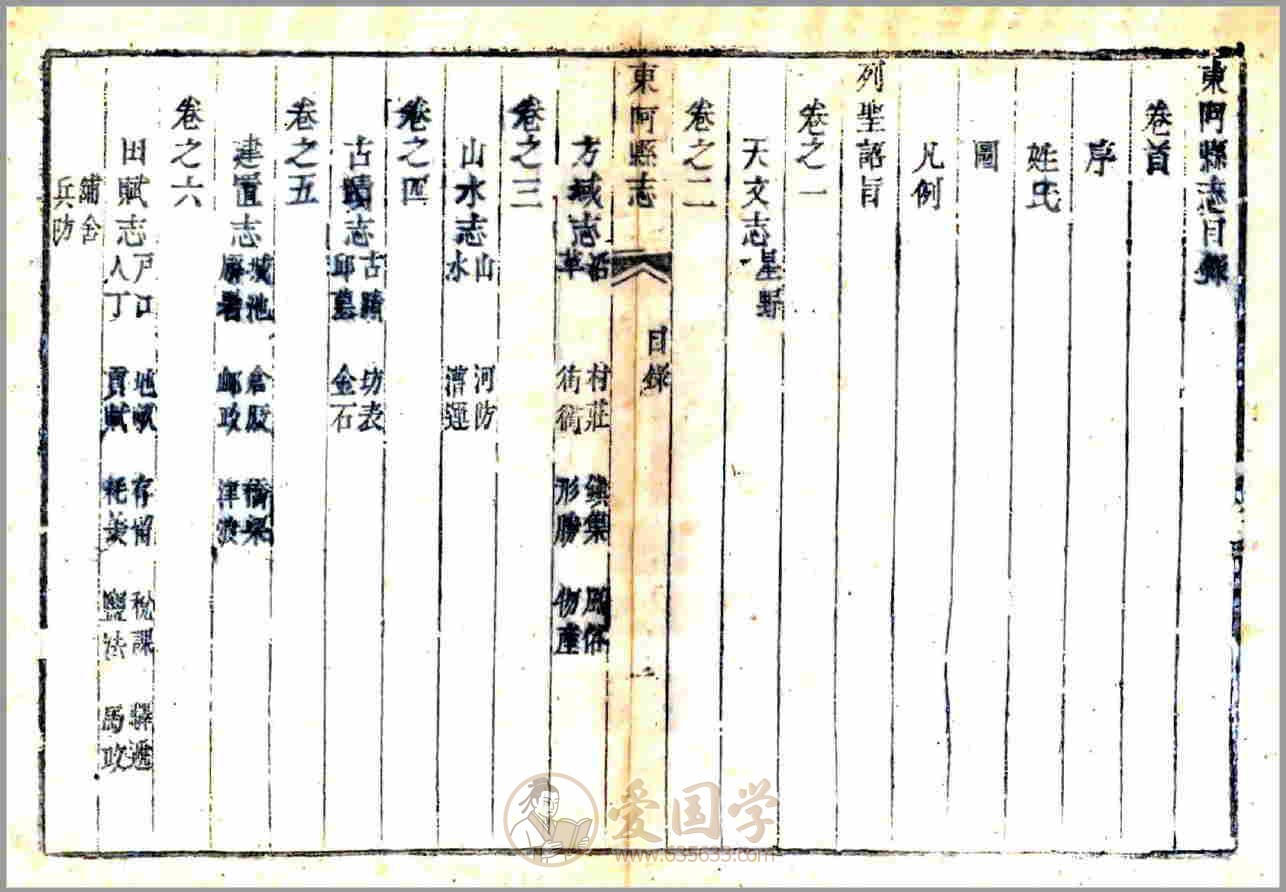 東阿縣志目錄
卷首
序
姓氏
圖
凡例
列聖詔旨
卷之一
天文志 星野
卷之二
東阿縣志 目錄 一
方域志 沿革 村莊 街衢 鎮集 形勝 風俗 物產
卷之三
山水志 山 水 河防 漕運
卷之四
古蹟志 古蹟 邱墓 坊表 金石
卷之五
建置志 城池 廨署 倉廒 郵政 橋梁 津渡
卷之六
田賦志 戸口 人丁 地畝 貢賦 存留 耗羡 稅課 鹽法 驛遞 馬政
鋪舍 兵防
爱国学
www.635633.com